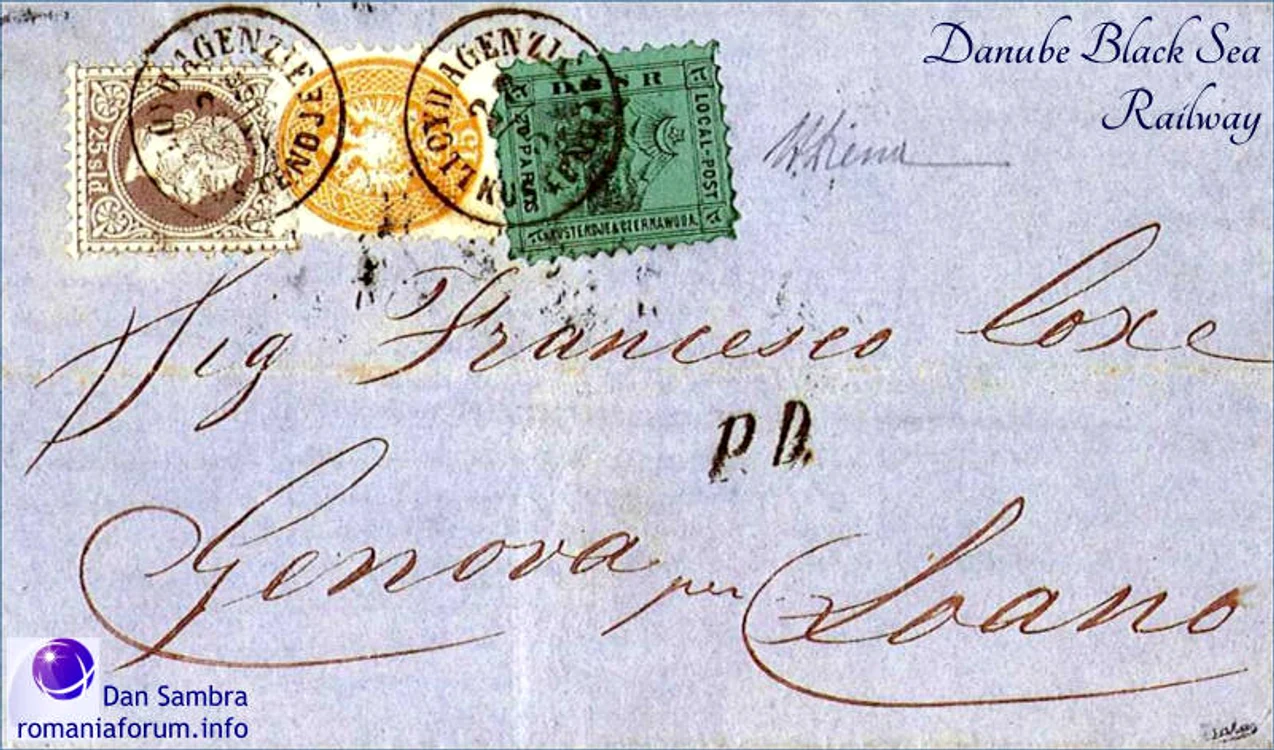 Danube Black Sea
Railway
LLOYDAGENZIE
KUSTENDJE
LLOYDAGENZIE
KUSTENDJE
25 sld
15
D B S R
LOCAL-POST
20 PARAS
KUSTENDJE & CZERNAWODA
Sig Francesco Coxe
P.D.
Genova per Loano
Dan Sambra
romaniaforum.info